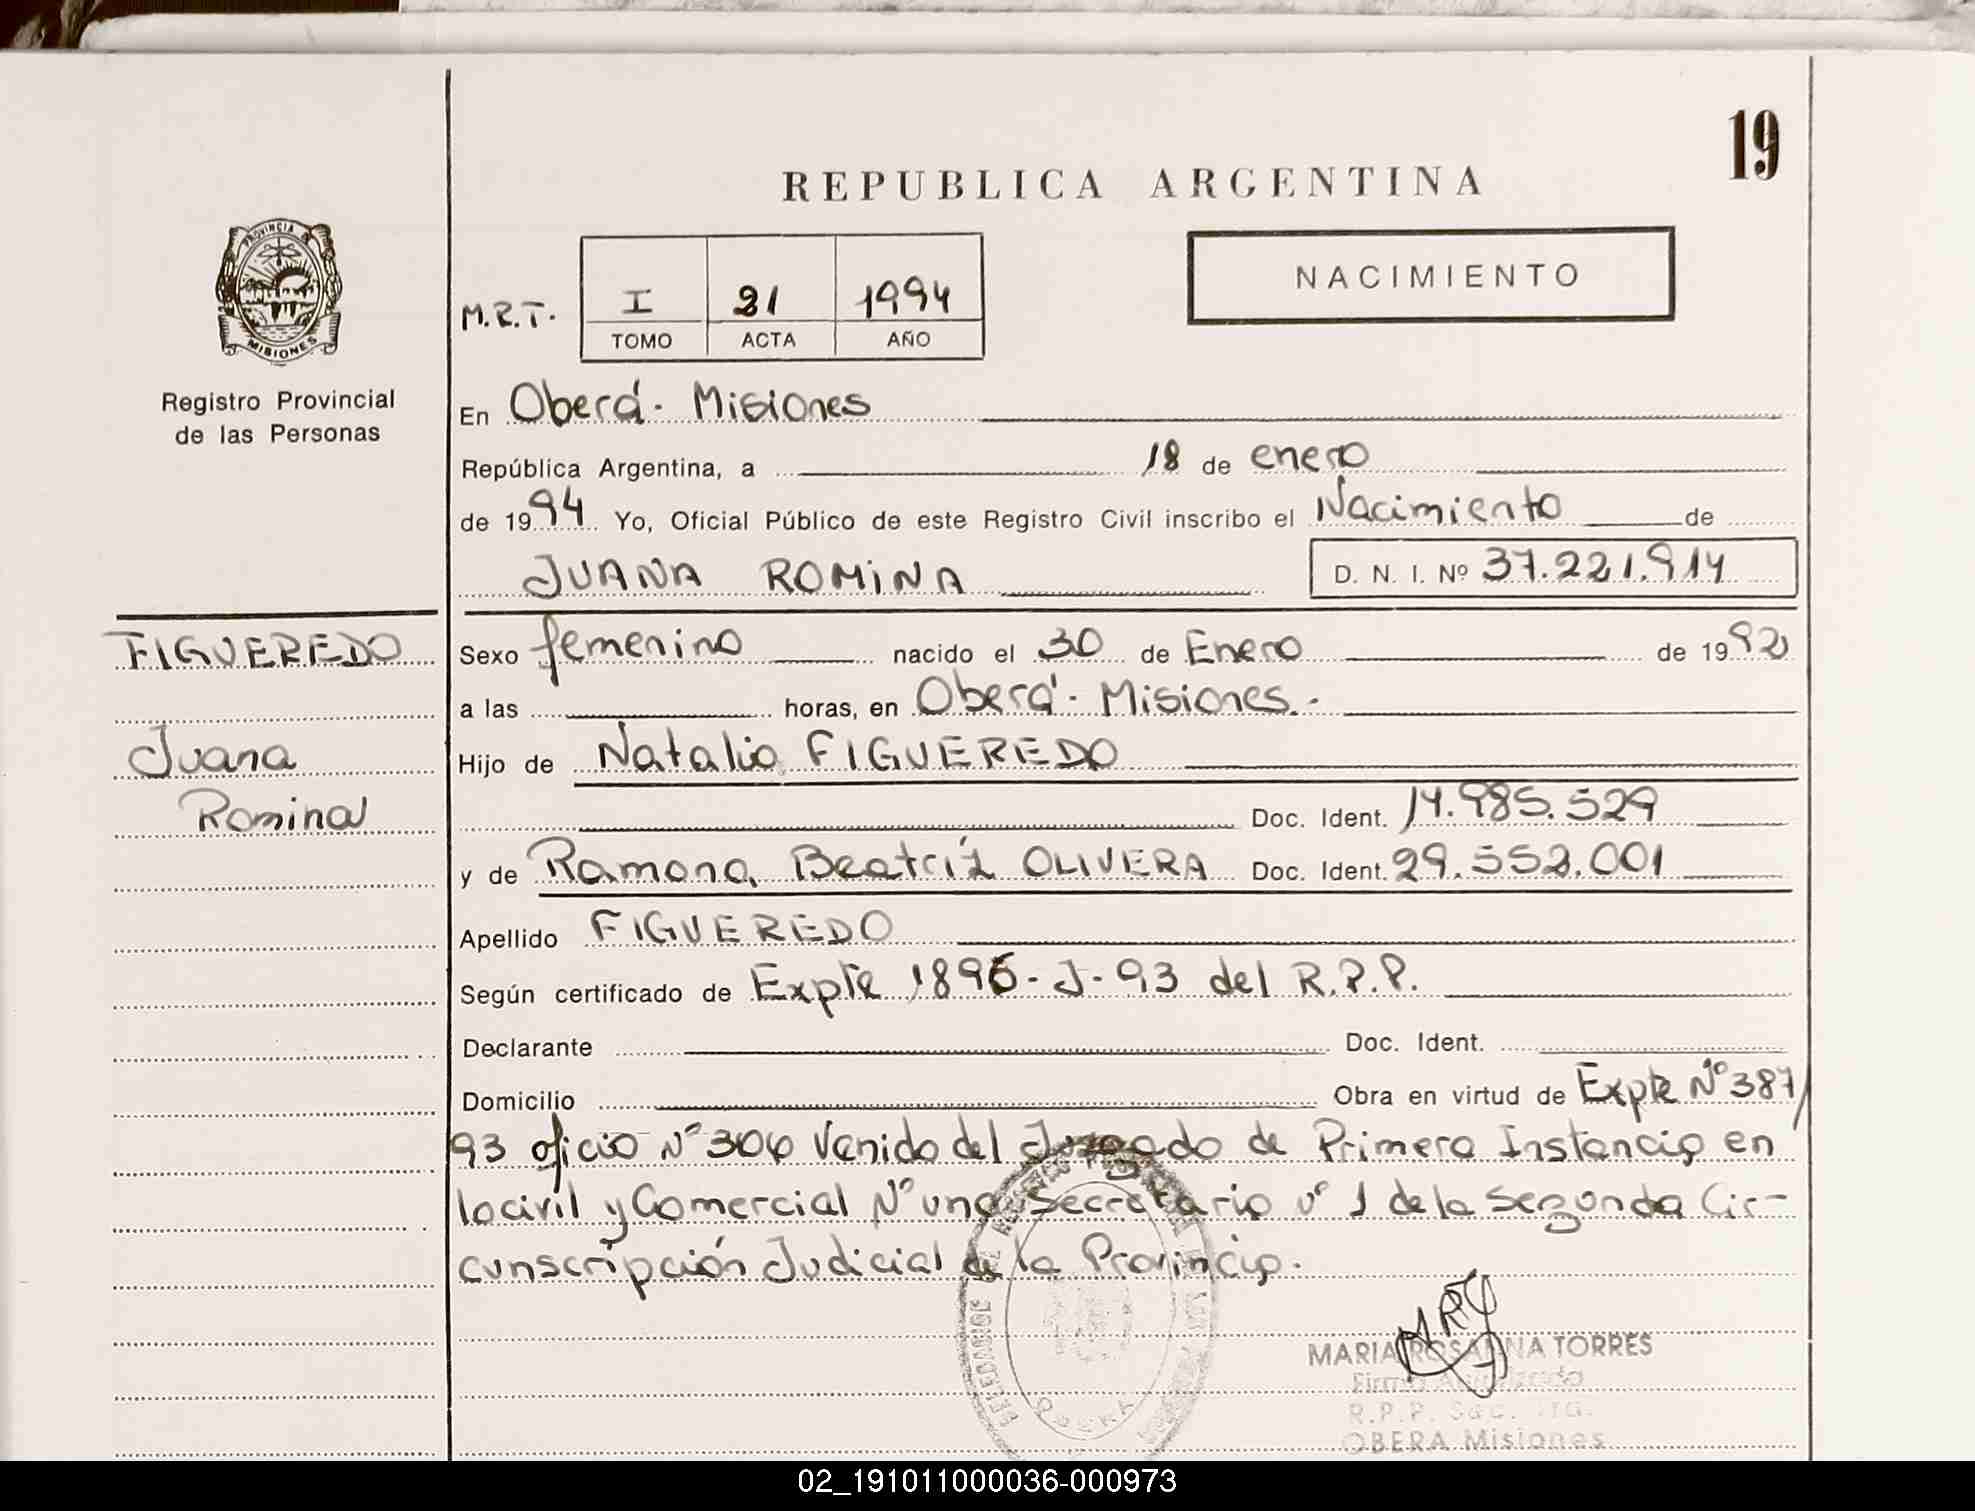 19
REPUBLICA ARGENTINA
PROVINCIA DE
MISIONES
Registro Provincial
de las Personas
M.R.T.
I 21 1994
TOMO ACTA AÑO
NACIMIENTO
En Oberá - Misiones
República Argentina, a 18 de enero
de 1994 Yo, Oficial Público de este Registro Civil inscribo el Nacimiento de
JUANA ROMINA D. N. I. Nº 37.221.914
FIGUEREDO
Juana
Romina
Sexo femenino nacido el 30 de Enero de 1992
a las horas, en Oberá - Misiones.-
Hijo de Natalio FIGUEREDO
Doc. Ident. 14.985.529
y de Ramona Beatríz OLIVERA Doc. Ident. 29.552.001
Apellido FIGUEREDO
Según certificado de Expte 1896-J-93 del R.P.P.
Declarante Doc. Ident.
Domicilio Obra en virtud de Expte Nº 387/
93 oficio Nº 304 Venido del Juzgado de Primera Instancia en
lo civil y Comercial Nº uno Secretaria nº 1 de la Segunda Cir-
cunscripción Judicial de la Provincia.
MARIA ROSANNA TORRES
R.P.P.
OBERA Misiones
02_191011000036-000973